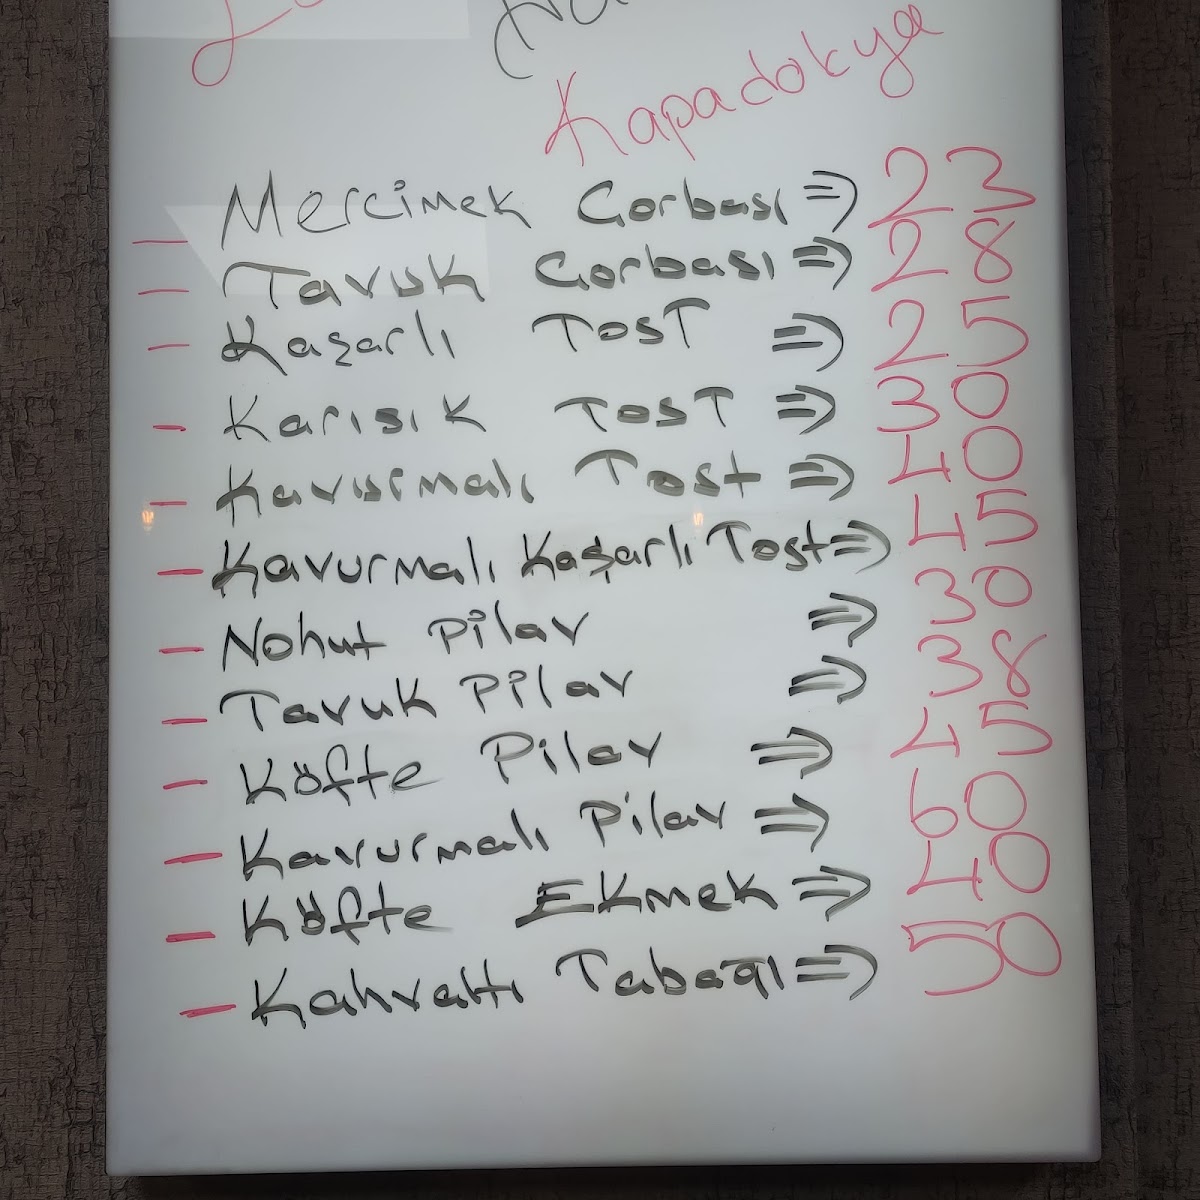 Kapadokya
- Mercimek Corbası => 23
- Tavuk Corbası => 28
- Kaşarlı Tost => 25
- Karısık Tost => 30
- Kavurmalı Tost => 40
- Kavurmalı Kaşarlı Tost => 45
- Nohut Pilav => 30
- Tavuk Pilav => 38
- Köfte Pilav => 45
- Kavurmalı Pilav => 60
- Köfte Ekmek => 40
- Kahvaltı Tabağı => 50